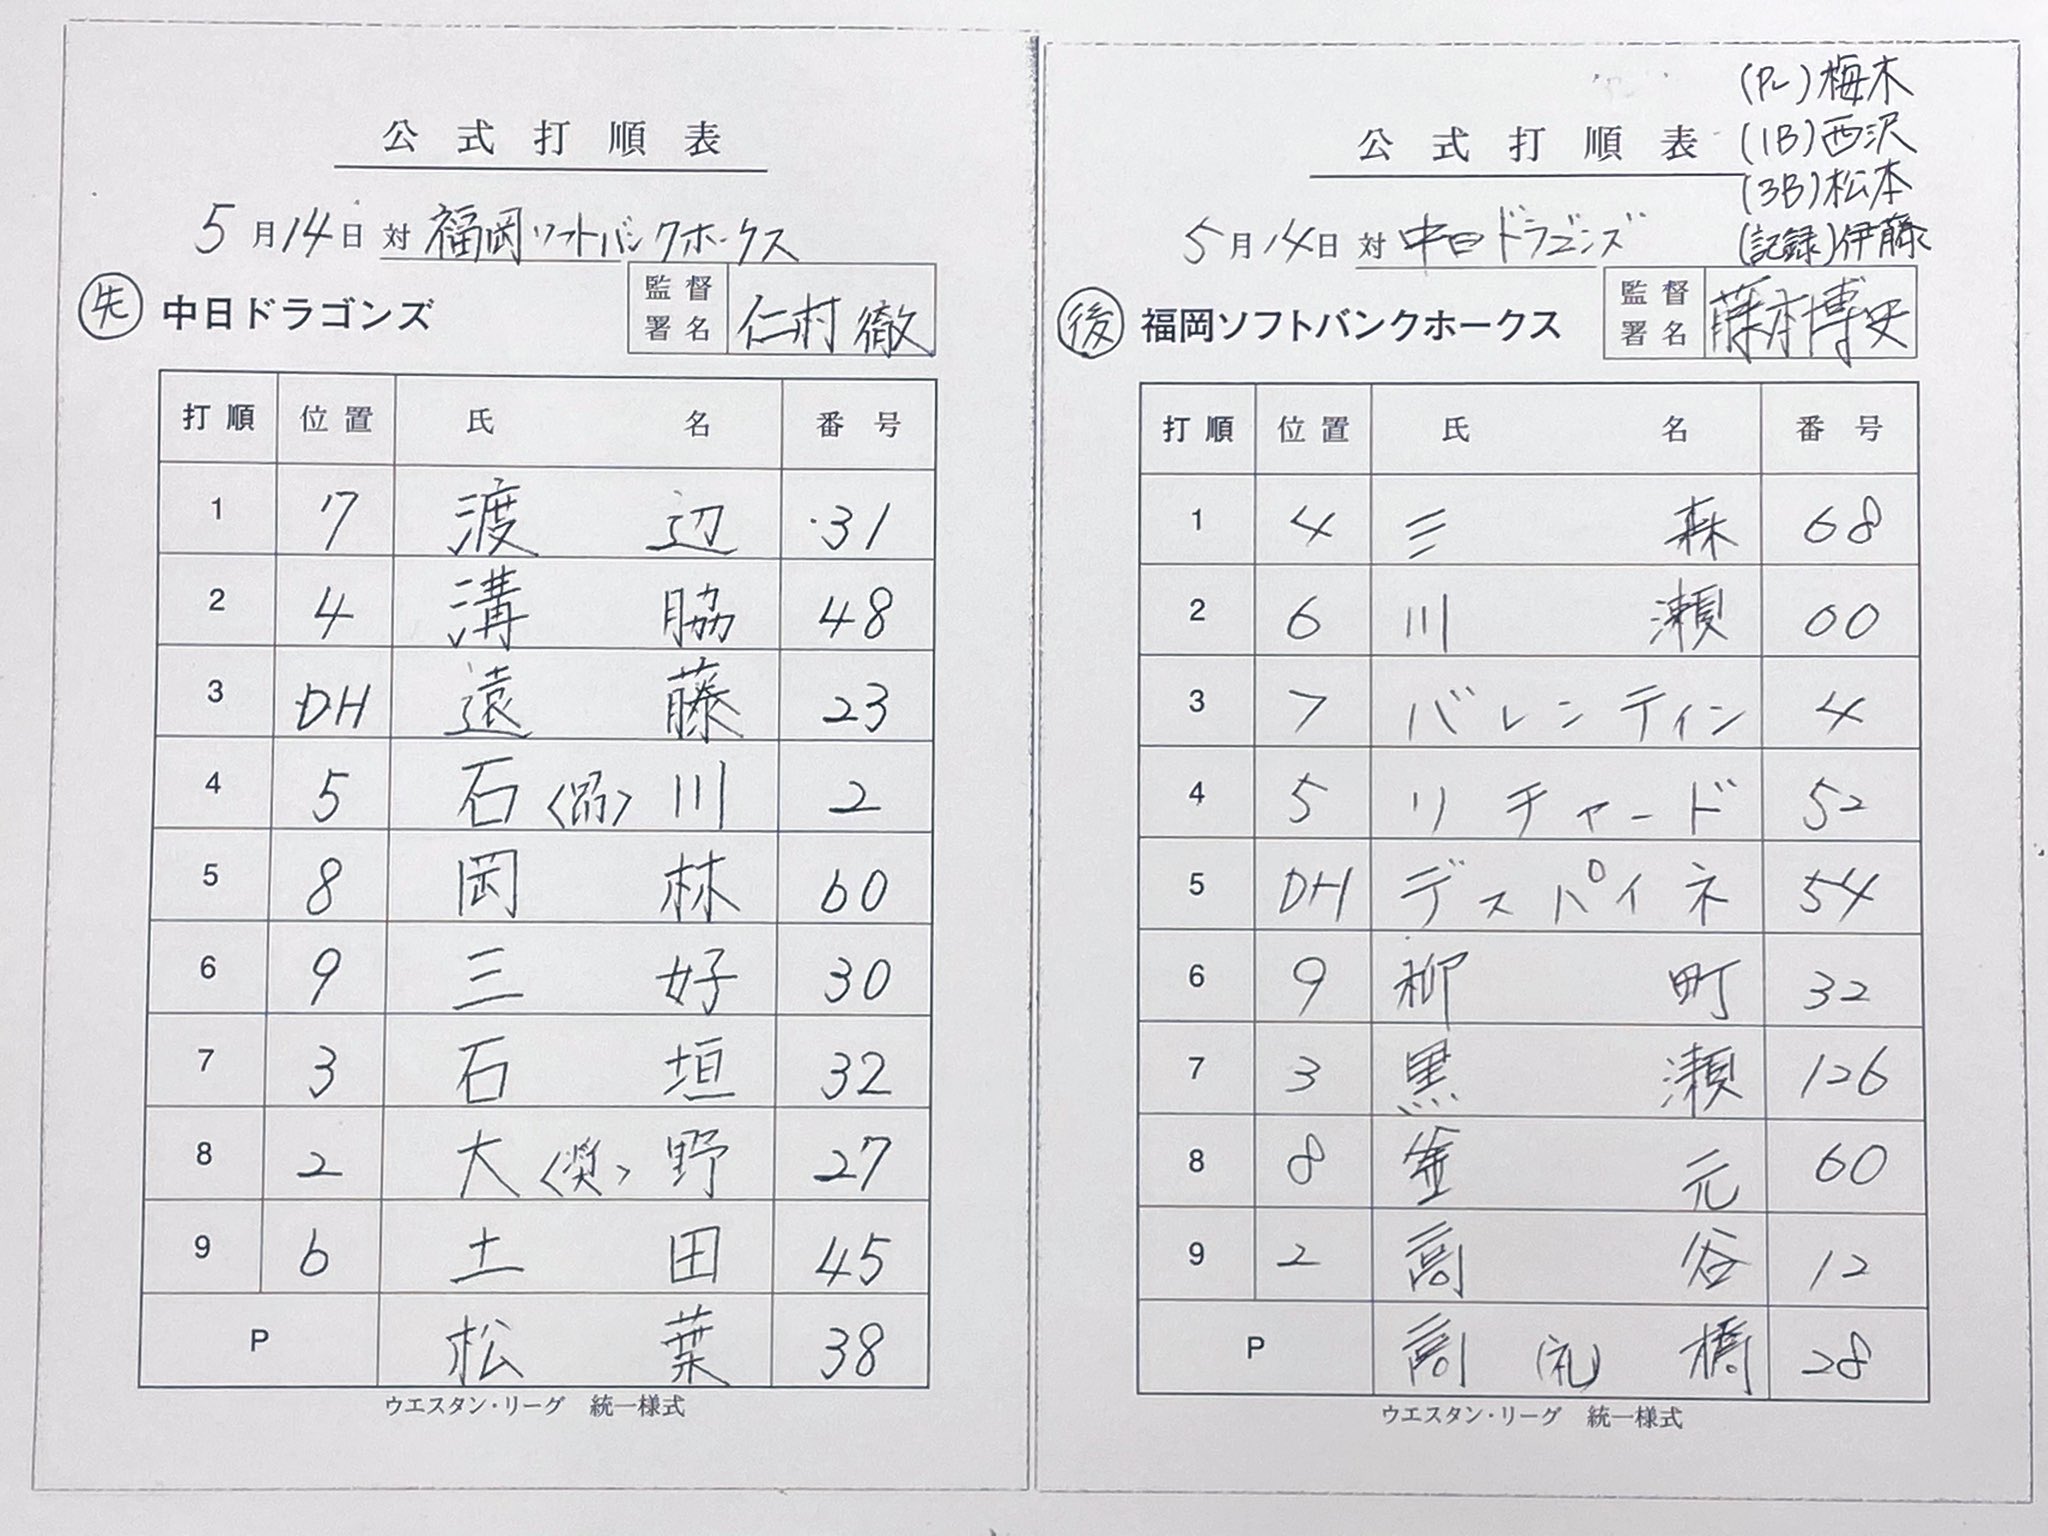 公式打順表
5月14日 対 福岡ソフトバンクホークス
先 中日ドラゴンズ 監督署名 仁村 徹
打順 位置 氏名 番号
1 7 渡辺 31
2 4 溝脇 48
3 DH 遠藤 23
4 5 石〈昂〉川 2
5 8 岡林 60
6 9 三好 30
7 3 石垣 32
8 2 大〈奨〉野 27
9 6 土田 45
P 松葉 38
ウエスタン・リーグ 統一様式
(PL)梅木
(1B)西沢
(3B)松本
(記録)伊藤
公式打順表
5月14日 対 中日ドラゴンズ
後 福岡ソフトバンクホークス 監督署名 藤本博史
打順 位置 氏名 番号
1 4 三森 68
2 6 川瀬 00
3 7 バレンティン 4
4 5 リチャード 52
5 DH デスパイネ 54
6 9 柳町 32
7 3 黒瀬 126
8 8 釜元 60
9 2 高谷 12
P 高(礼)橋 28
ウエスタン・リーグ 統一様式